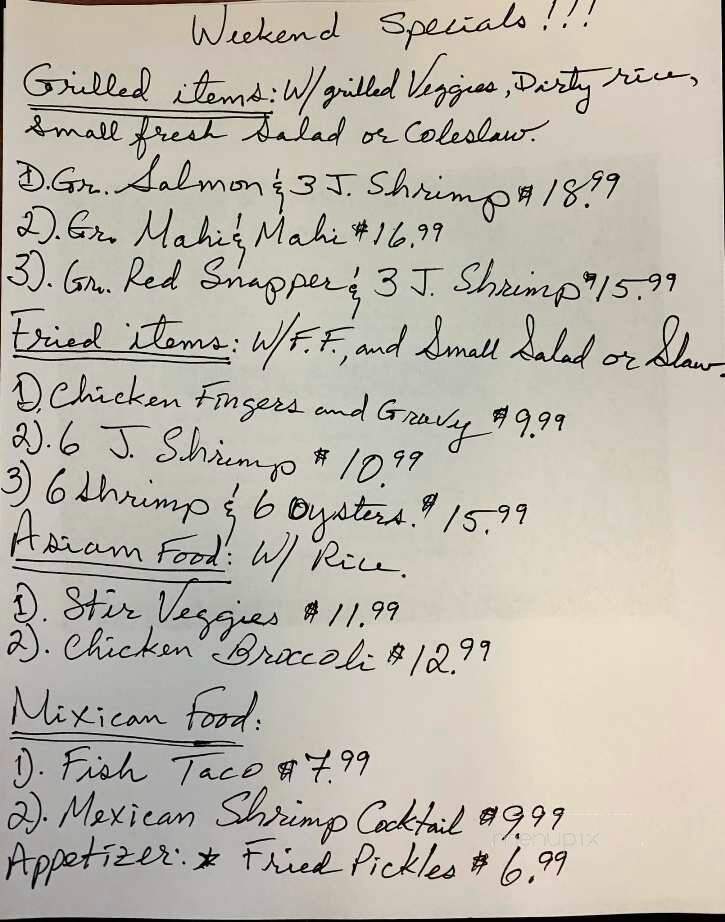 Weekend Specials!!!
Grilled items: W/grilled Veggies, Dirty rice,
Small fresh Salad or Coleslaw.
1). Gr. Salmon & 3 J. Shrimp $18.99
2). Gr. Mahi & Mahi $16.99
3). Gr. Red Snapper & 3 J. Shrimp $15.99
Fried items: W/F.F., and Small Salad or Slaw.
1), Chicken Fingers and Gravy $9.99
2). 6 J. Shrimp $10.99
3) 6 Shrimp & 6 Oysters. $15.99
Asiam Food: W/ Rice.
1). Stir Veggies $11.99
2). Chicken Broccoli $12.99
Mixican Food:
1). Fish Taco $7.99
2). Mexican Shrimp Cocktail $9.99
menupix
Appetizer: * Fried Pickles $6.99